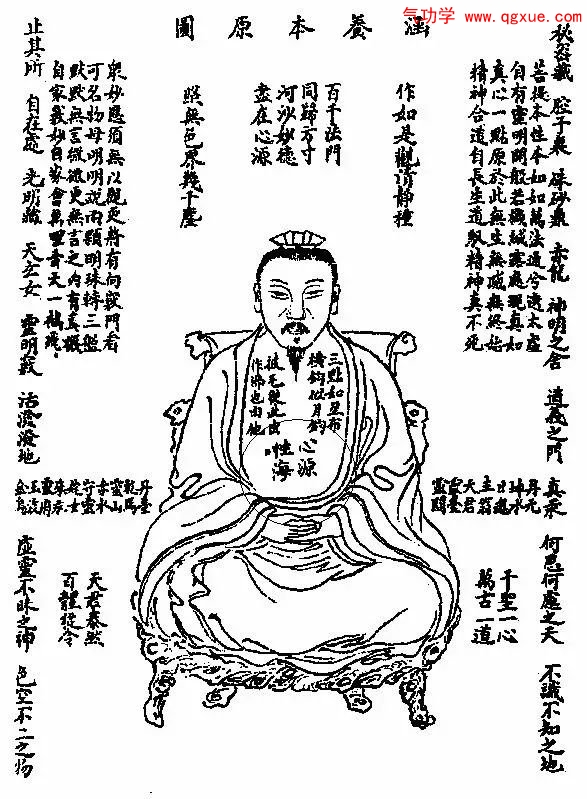 气功学 www.qgxue.com
涵養本原圖
秘密藏 腔子裏 硃砂鼎 赤龍 神明之舍 道義之門 真汞 何思何慮之天 不識不知之地
菩提本性本如如萬法通兮遠太虛
自有靈明開般若機緘露處現真如
真心一點原於此無生無滅無終始
精神合道自長生道馭精神真不死
作如是觀清靜種
百千法門
同歸方寸
河沙妙德
盡在心源
照無色界幾千塵
衆妙應須無以觀更將有向竅門看
可名物母明明說兩顆明珠轉一盤
默默無言微微更無言之內有真機
自家義妙自家會萬里青天一鶴飛
止其所 自在處 光明藏 天玄女 靈明竅 活潑潑地 虛靈不昧之神 色空不二之場
三點如星布
橫鈎似月鈎
披毛從此出
作佛也由他
心源
性海
丹元
神水
日魂
主翁
天君
靈臺
靈關
丹臺
乾馬
靈山
赤水
守靈
姹女
朱汞
玉液
金烏
千聖一心
萬古一道
天君泰然
百體從令